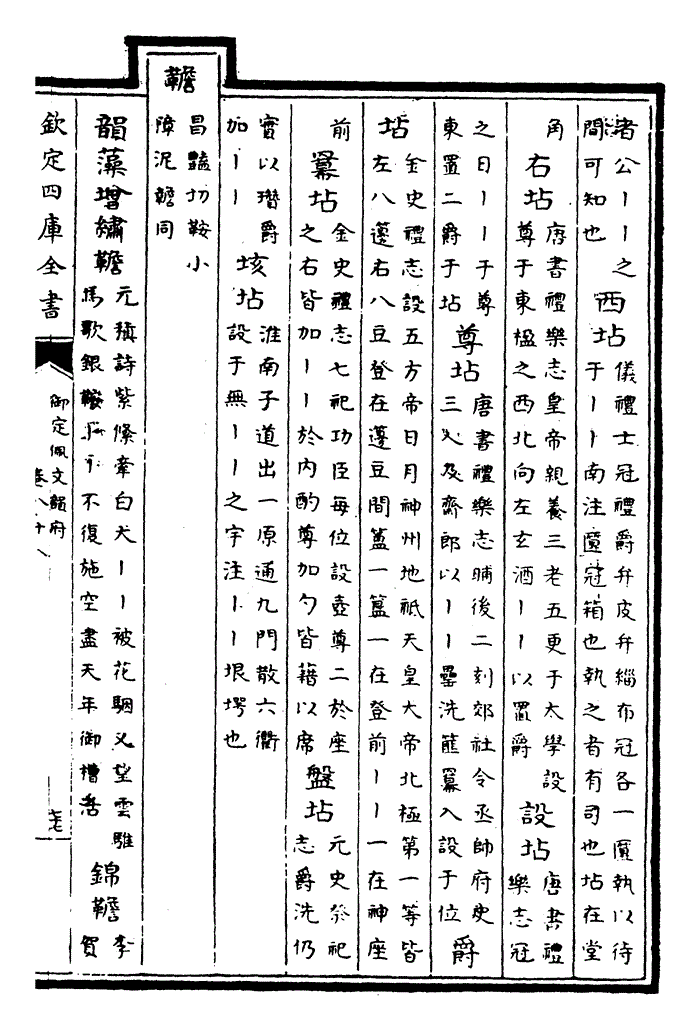 渚公丨丨之間可知也 西坫 儀禮士冠禮爵弁皮弁緇布冠各一匴執以待于丨丨南注匴冠箱也執之者有司也坫在堂
角 右坫 唐書禮樂志皇帝親養三老五更于太學設尊于東楹之西北向左玄酒丨丨以置爵 設坫 唐書禮樂志冠
之日丨丨于尊東置二爵于坫 尊坫 唐書禮樂志晡後二刻郊社令丞帥府史三人及齋郎以丨丨罍洗篚羃入設于位 爵
坫 金史禮志設五方帝日月神州地祇天皇大帝北極第一等皆左八籩右八豆登在籩豆間簠一簋一在登前丨丨一在神座
前 羃坫 金史禮志七祀功臣每位設壺尊二於座之右皆加丨丨於內酌尊加勺皆藉以席 盤坫 元史祭祀志爵洗仍
實以瓚爵加丨丨 垓坫 淮南子道出一原通九門散六衢設于無丨丨之宇注丨丨垠堮也
韂 昌豔切鞍小障泥韂同
韻藻增繡韂 元稹詩紫絛牽白犬丨丨被花駰又望雲騅馬歌銀鞍丨丨不復施空盡天年御槽活 錦韂 李賀
欽定四庫全書
御定佩文韻府
卷八十八